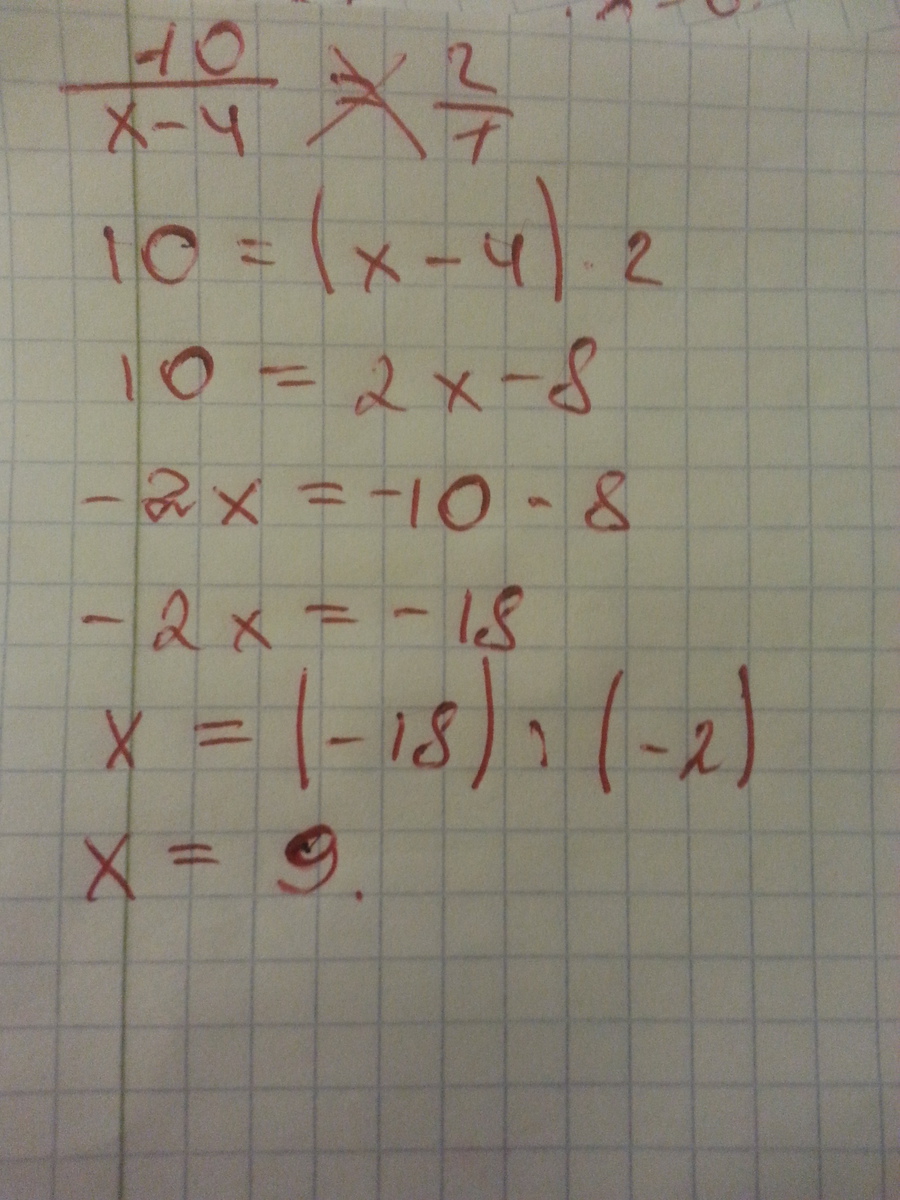 -10/x-4 = 2/1
10 = (x-4) · 2
10 = 2x-8
-2x = -10 - 8
-2x = -18
x = (-18) : (-2)
x = 9.